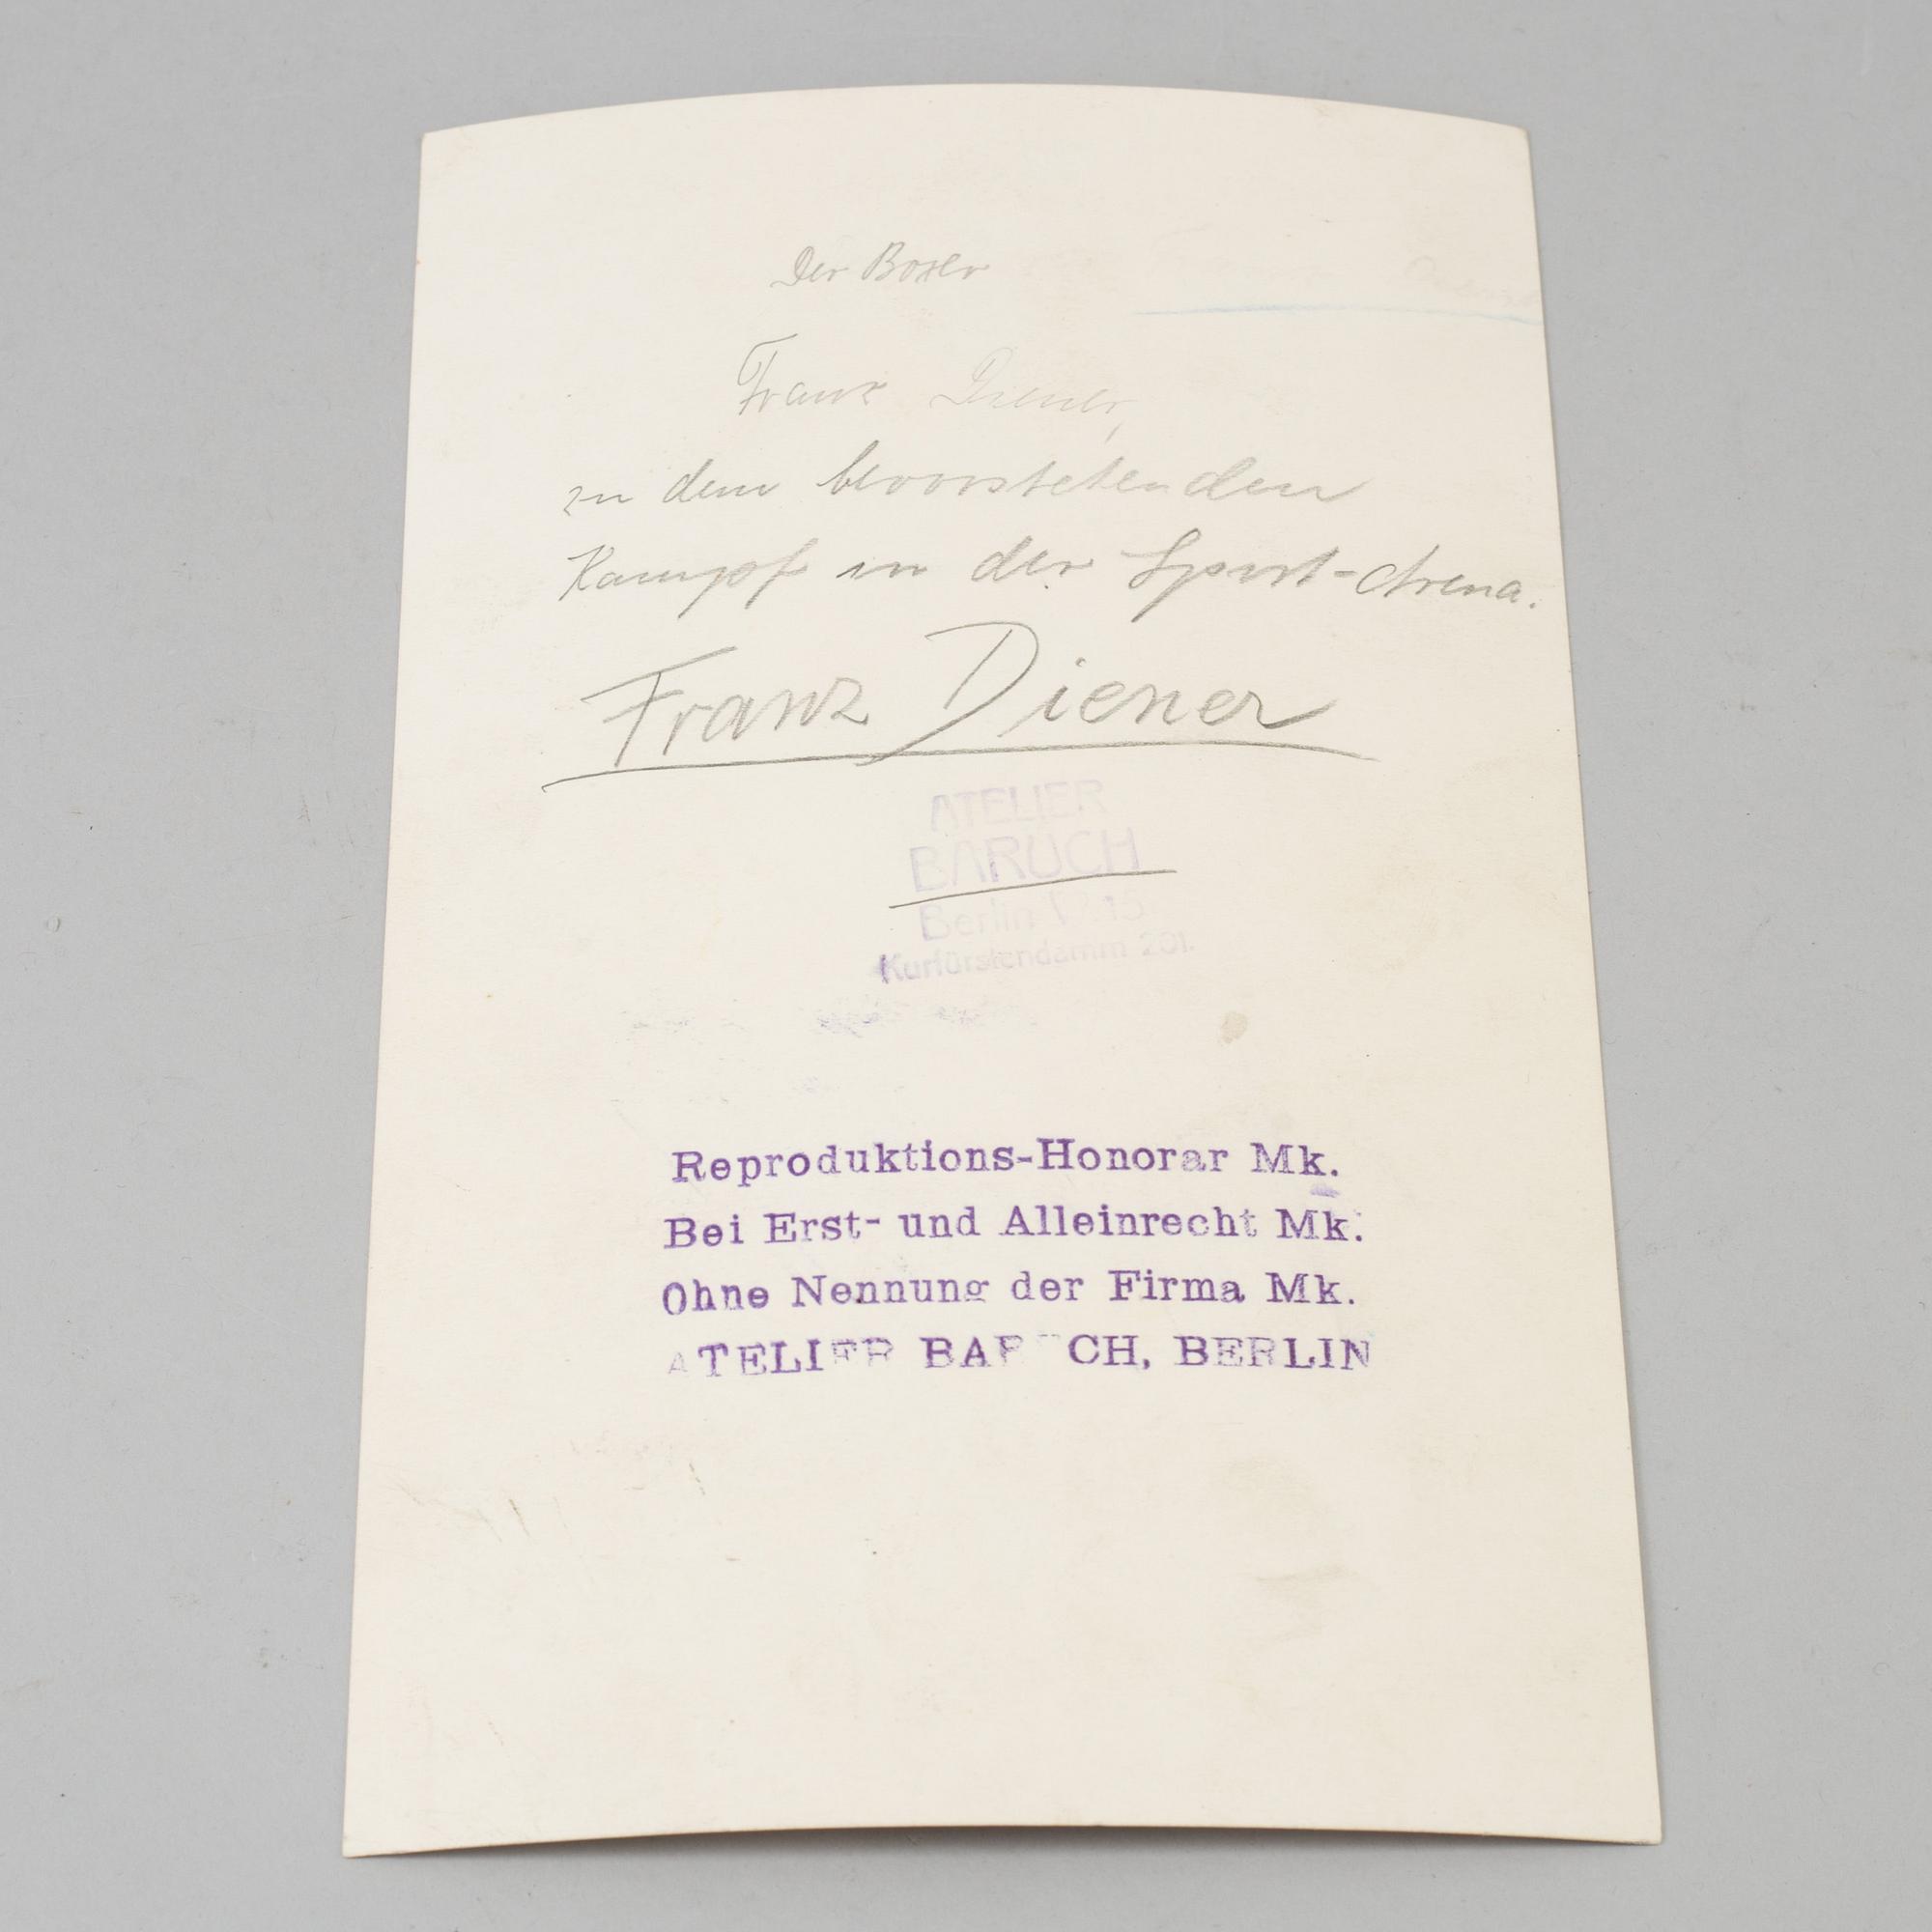 Der Boxer
Franz Diener,
zu dem bevorstehenden
Kampf in der Sport-Arena.
Franz Diener
ATELIER
BARUCH
Berlin W. 15
Kurfürstendamm 201.
Reproduktions-Honorar Mk.
Bei Erst- und Alleinrecht Mk.
Ohne Nennung der Firma Mk.
ATELIER BARUCH, BERLIN